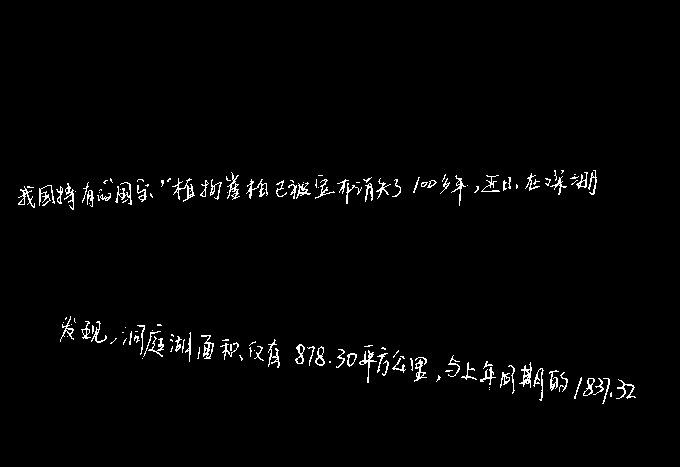 我国特有的“国宝”植物崖柏已被宣布消失了100多年,近日,在深潮
发现,洞庭湖面积仅有878.30平方公里,与上年同期的1837.32